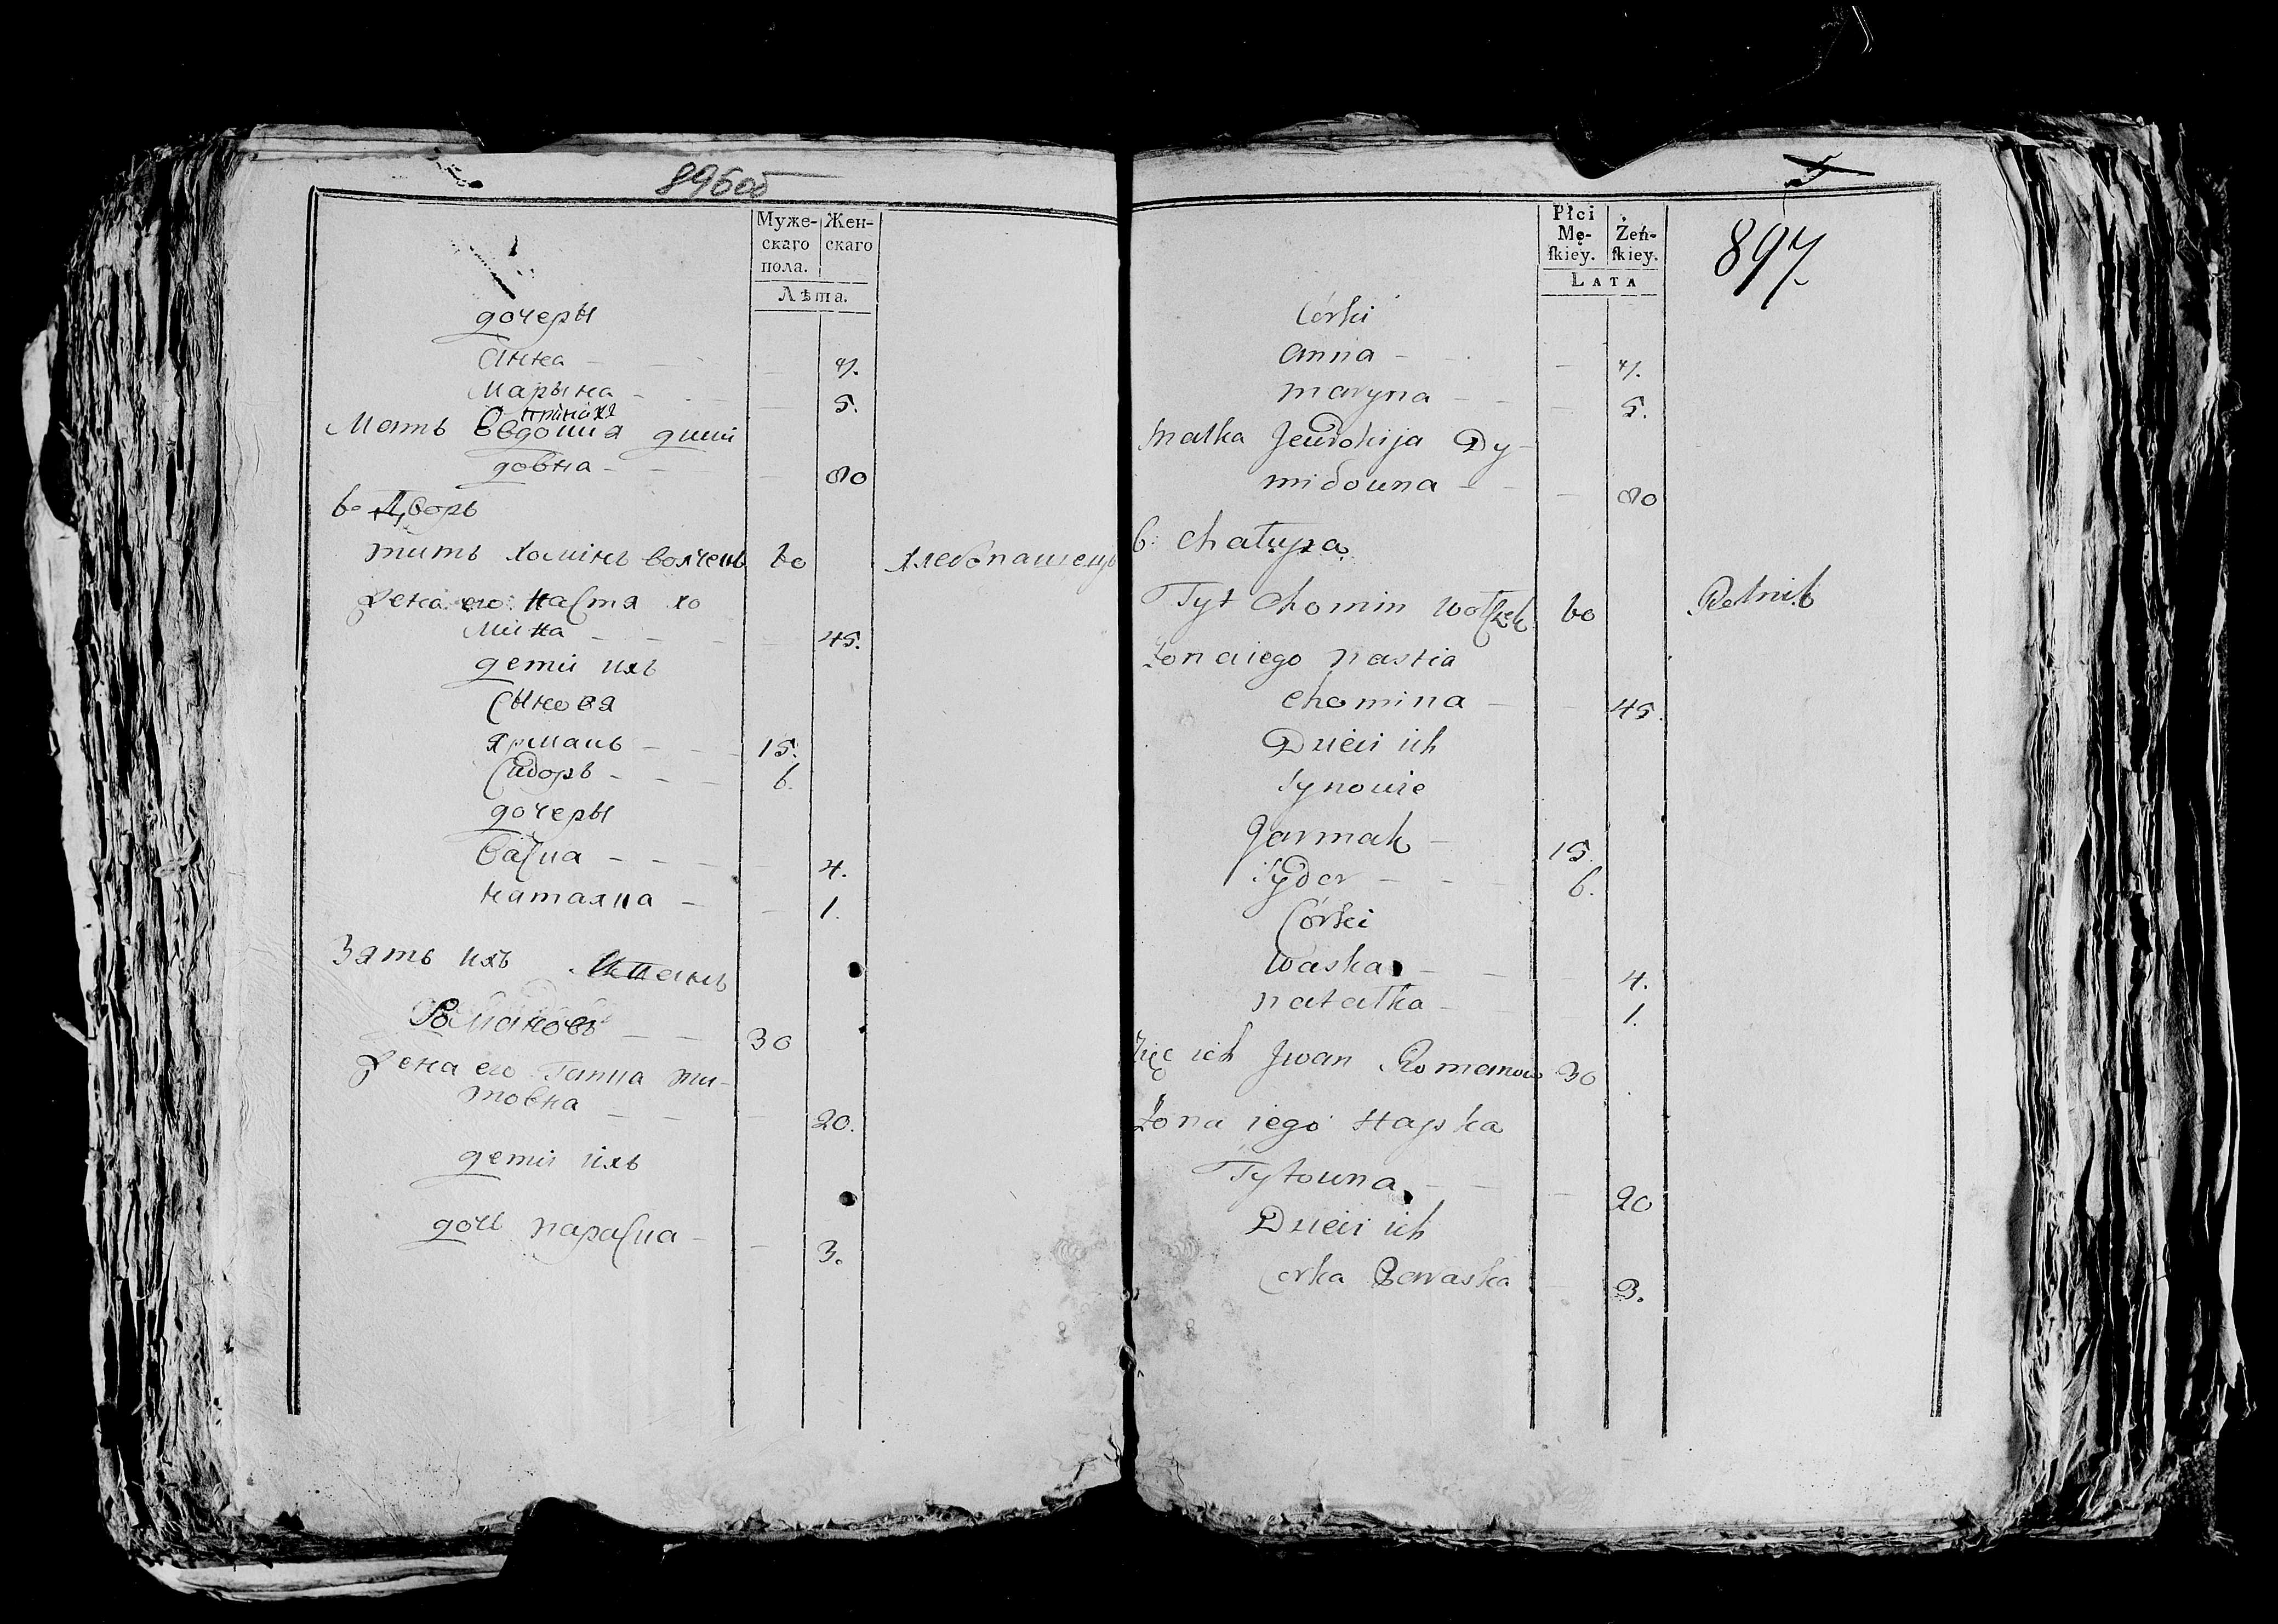 896об
Муже-
скаго
пола.
Жен-
скаго
Лѣта.
дочеры
Анна - 7.
Марына - 5.
Мать Овдокия дими
довна - 80
6. Дворъ
Титъ Хоминъ 60 хлебопашецъ
Жена его Настя Хо
мина - 45.
дети ихъ
Сыновя
Ярмакъ - 15.
Сидоръ - 6.
дочеры
Васка - 4.
Наталка - 1.
Зять ихъ Иванъ
Романовъ - 30
Жена его Гапка Ти-
товна - 20.
дети ихъ
дочь Параска - 3.
Płci
Mę-
skiey.
Żeń-
skiey.
LATA
897
Córki
Anna - 7.
Maryna - 5.
Matka Jewdokija Dy-
midowna - 80
6. Chałupa
Tyt Chomin 60 Rolnik
Zona iego Nastia
Chomina - 45.
Dzieci ich
Synowie
Jarmak - 15.
Sydor - 6.
Córki
Waska - 4.
Natałka - 1.
Zięc ich Jwan Romanow 30
Zona iego Hapka
Tytowna - 20
Dzieci ich
Corka Paraska 3.